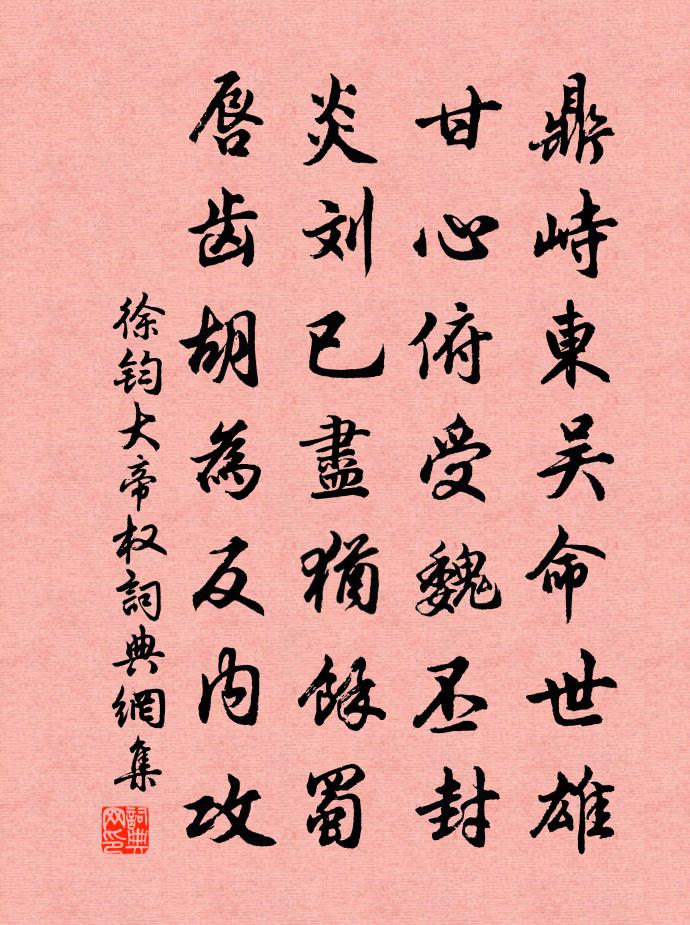 鼎峙東吴命世雄
甘心俯受魏丕封
炎刘已盡猶餘蜀
唇齿胡為反内攻
徐钧大帝权詞典網集
詞典网印